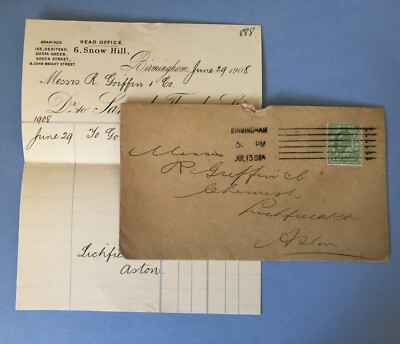 888
BRANCHES
188, DERITEND,
GOSTA GREEN,
GOOCH STREET,
& JOHN BRIGHT STREET.
HEAD OFFICE.
6, Snow Hill,
Birmingham, June 29 1908
Messrs R Griffin & Co.
Dr to
1908
June 29 To Go
Lichfie
Aston
BIRMINGHAM
5 PM
JUL 13 08
Messrs
R Griffin & Co
Chemists
Lichfield Rd
Aston